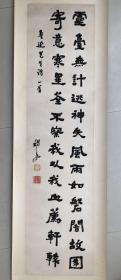 靈臺無計逃神矢風雨如磐闇故園
寄意寒星荃不察我以我血薦軒轅
魯迅先生詩一首